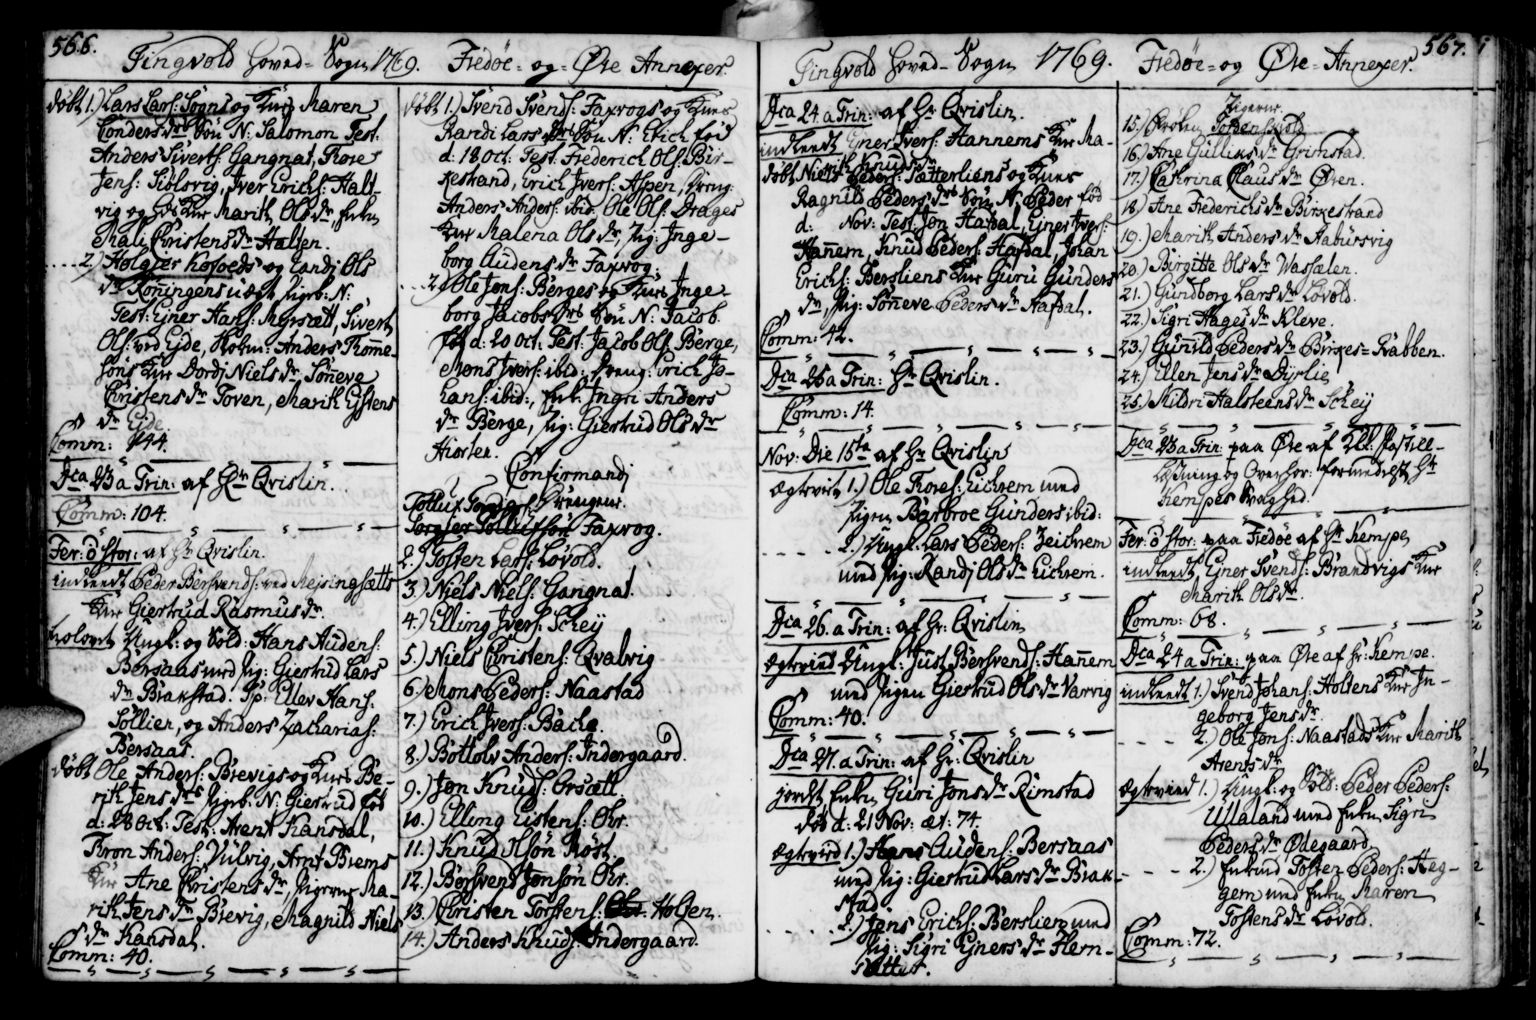 566.
Tingvold Hoved-Sogn 1769.
døbt 1.) Lars Lars: Søgns og Kones Maren
Conders drs Søn N: Salomon Test:
Anders Siverts: Gangnat, Tore
Jens: Siølsvig, Iver Erichs: Halt-
vig og Kone Marith Ols dr, Enken
Mali Christens dr Halsen.
2.) Holgier Kofoeds og Randj Ols
dr Koningens uægte N:
Test: Ejner Hans: Meisætt, Sivert
Ols: ved Eide, Anders Tomme-
sons Kone Dordj Niels dr, Sønneve
Christens dr Toven, Marith Eistens
dr Eide.
Comm: 144.
Dca 23 a Trin: af Hr Qvislin.
Comm: 104.
Fer: 6 stor: af Hr Qvislin.
indleedt Peder Børsvends: ved Meisingsætts
Kone Giertrud Rasmus dr.
trolovet Ungk: og Sold: Hans Audens:
Bersaas med Pig: Giertrud Lars
dr Brakstad. Sp: Ellev Hans:
Sollien, og Anders Zacharias:
Bersaas.
døbt Ole Anders: Brevigs og Kones Be-
rith Jens drs N: Giertrud fød
d: 28 Oct: Test: Arent Kansdal,
Tron Anders: Vulvig, Arnt Brems
Kone Ane Christens dr, Pigerne Ma-
rith Jens dr Brevig, Magnild Niels
dr Kansdal.
Comm: 40.
Fredøe- og Øre Annexer.
døbt 1.) Svend Svends: Faxvogs og Kones
Randi Lars drs Søn N: Erich fød
d: 18 Oct: Test: Frederich Ols: Bir-
kestrand, Erich Ivers: Aspen, Dreng:
Anders Anders: ibid: Ole Ols: Drages
Kone Malena Ols dr, Pig: Inge-
borg Audens dr Faxvog.
2.) Ole Jons: Berges og Kones Inge-
borg Jacobs drs Søn N: Jacob
fød d: 20 Oct: Test: Jacob Ols: Berge,
Mons Ivers: ibid: Dreng: Erich Jo-
hans: ibid:, Enk: Ingri Anders
dr Berge, Pig: Giertrud Ols dr
Hiorten.
Confirmandj
Drengene.
Faxvog.
2.) Tosten Lars: Lovold.
3.) Niels Niels: Gangnat.
4.) Elling Ivers: Schey
5.) Niels Christens: Qvalvig
6.) Mons Peders: Naastad
7.) Erich Ivers: Backe
8.) Bottolv Anders: Indergaard.
9.) Jon Knuds: Orsætt.
10.) Elling Eistens: Ohr.
11.) Knud Olsøn Røst.
12.) Børsvend Jonsøn Ohr.
13.) Christen Torstens: Holsen.
14.) Anders Knuds: Indergaard.
Tingvold Hoved-Sogn 1769.
Dca 24. a Trin: af Hr Qvislin.
indleedt Ejner Ivers: Hannems Kone Ma-
rith Knuds dr
døbt Niels Peders: Sætterliens og Kones
Ragnild Peders drs Søn N: Peder fød
d: Nov: Test: Jon Hafdal, Ejner Ivers:
Hannem, Knud Peders: Hafdal, Johan
Erichs: Bersliens Kone Guru Gunders
dr, Pig: Sønneve Peders dr Hafdal.
Comm: 42.
Dca 25 a Trin: Hr Qvislin.
Comm: 14.
Nov: Die 15te af Hr Qvislin
Ægtevite 1.) Ole Tores: Eichrem med
Pigen Barbroe Gunders ibid:
2.) Ungk: Lars Peders: Zeichrem
med Pig: Randj Ols dr Eichrem.
Dca 26. a Trin: af Hr: Qvislin
Ægtevied Ungk: Just Børsvends: Hannem
med Pigen Giertrud Ols dr Varvig
Comm: 40.
Dca 27. a Trin: af Hr: Qvislin
jordet Enken Guri Jons dr Rimstad
død d: 21 Nov: æt: 74.
Ægteviid 1.) Hans Audens: Bersaas
med Pig: Giertrud Lars dr Brak-
stad
2.) Jens Erichs: Berslien med
Pig: Sigri Ejners dr Flem-
sættet.
567.
Fredøe- og Øre- Annexer.
Pigerne.
15.) Torvold
16.) Ane Gulliks dr Grimstad.
17.) Cathrina Claus dr Øren.
18.) Ane Frederichs dr Birkestrand
19.) Marith Anders dr Aabursvig
20.) Birgitte Ols dr Wassælen.
21.) Gundborg Lars dr Lovold.
22.) Sigri Aages dr Kleve.
23.) Gunild Peders dr Birkes-Rabben.
24.) Ellen Jens dr Dyrlie
25.) Mildri Halsteens dr Schey
Dca 23 a Trin: paa Øre af Kl: Postill-
Læsning og Overhør: formedelst Hr
Kempes Svaghed.
Fer: 6 stor: paa Fredøe af Hr Kempe
indleedt Ejner Svends: Brandvigs Kone
Marith Ols dr.
Comm: 68.
Dca 24 a Trin: paa Øre af Hr: Kempe.
indleedt 1.) Svend Johans: Holtens Kone In-
geborg Jens dr.
2.) Ole Jons: Naastads Kone Marith
Arents dr
Ægteviid 1.) Ungk: og Sold: Peder Peders:
Ullaland med Enken Sigri
Peders dr Ødegaard
2.) Enkmd Tosten Peders: Heg-
gem med Enken Maren
Tostens dr Lovold.
Comm: 72.